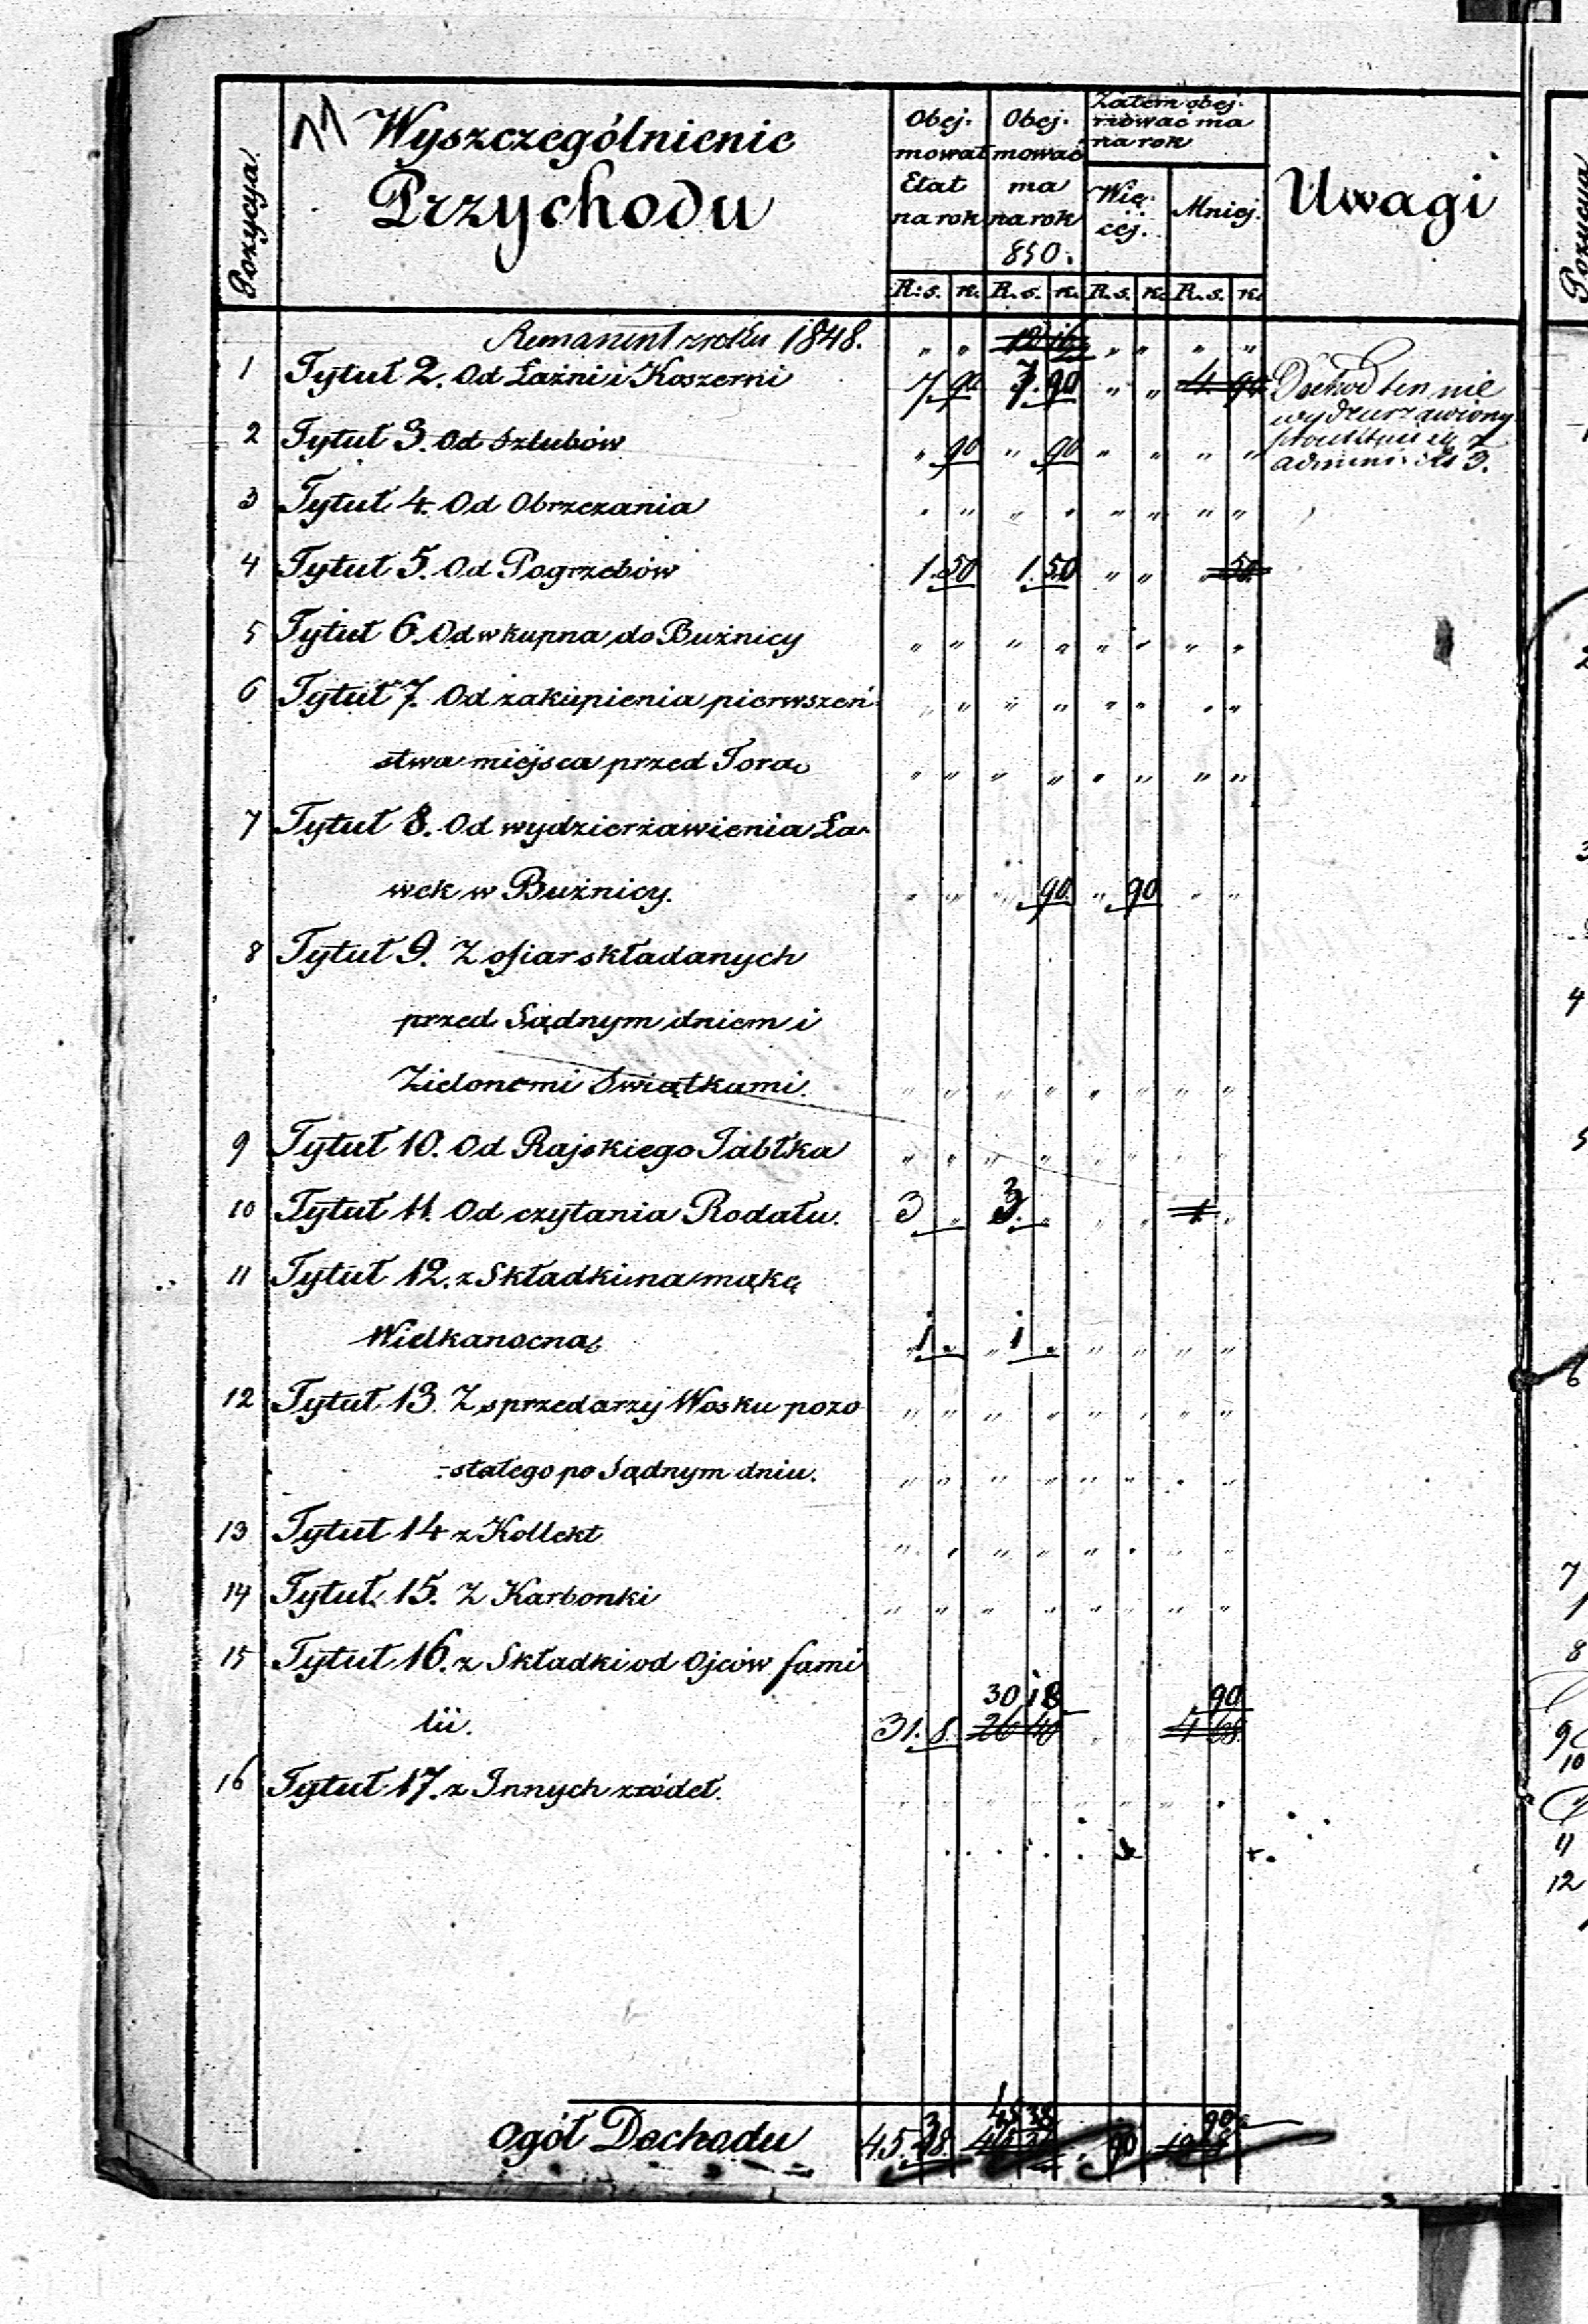 Pozycya
Wyszczególnienie
Przychodu
Obej-
mował
Etat
na rok
Obej-
mować
ma
na rok
850.
Zatem obej-
mować ma
na rok
Wię-
cej.
Mniej.
Uwagi
R. s. k. R. s. k. R. s. k. R. s. k.
Remanent z roku 1848. „ „ 12 16 „ „ „ „
1 Tytuł 2. Od Łaźni i Koszerni 7 90 7. 90 „ „ 4 90 Dochod ten nie
wydzierżawiony
2 Tytuł 3. Od Szlubów „ 90 „ 90 „ „ „ „
admini: Rs 3.
3 Tytuł 4. Od Obrzezania „ „ „ „ „ „ „ „
4 Tytuł 5. Od Pogrzebów 1. 50 1. 50 „ „ „ 50
5 Tytuł 6. Od wkupna do Bużnicy „ „ „ „ „ „ „ „
6 Tytuł 7. Od zakupienia pierwszeń „ „ „ „ „ „ „ „
stwa miejsca przed Torą „ „ „ „ „ „ „ „
7 Tytuł 8. Od wydzierżawienia Ła-
wek w Bużnicy. „ „ „ 90. „ 90 „ „
8 Tytuł 9. Z ofiar składanych
przed Sądnym dniem i
Zielonemi Swiątkami. „ „ „ „ „ „ „ „
9 Tytuł 10. Od Rajskiego Jabłka „ „ „ „ „ „ „ „
10 Tytuł 11. Od czytania Rodału. 3 „ 3 „ „ „ 1 „
11 Tytuł 12. z Składki na mąkę
Wielkanocną „ 1 „ „ 1 „ „ „ „ „
12 Tytuł 13. Z sprzedarzy Wosku pozo „ „ „ „ „ „ „ „
-stałego po Sądnym dniu. „ „ „ „ „ „ „ „
13 Tytuł 14 z Kollekt „ „ „ „ „ „ „ „
14 Tytuł 15. Z Karbonki „ „ „ „ „ „ „ „
15 Tytuł 16. z Składki od Ojców fami
30 18 90
lii. 31. 8. 26 40 „ „ 4 68
16 Tytuł 17. z Innych zródeł. „ „ „ „ „ „ „ „
45 38 90
Ogół Dochodu 45. 38. „ 90